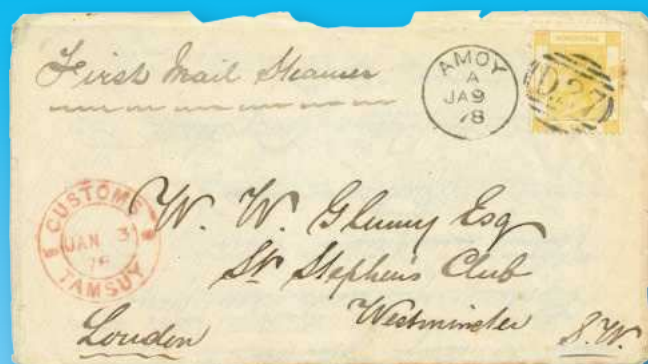 First Mail Steamer
AMOY
A
JA 9
78
D27
CUSTOMS
JAN 3
78
TAMSUY
W. W. Glenny Esq
St Stephens Club
Westminster
London
S.W.